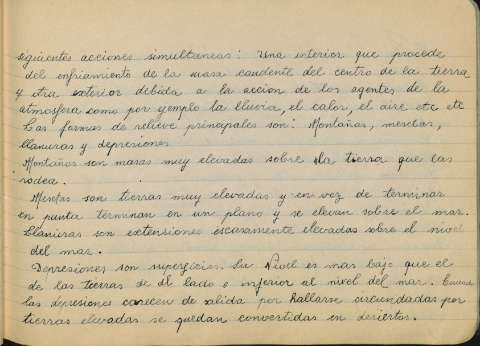 siguientes acciones simultaneas: Una interior que procede
del enfriamiento de la masa candente del centro de la tierra
y otra exterior debida a la accion de los agentes de la
atmosfera como por ejemplo la lluvia, el calor, el aire etc etc
Las formas de relieve principales son: Montañas, mesetas,
llanuras y depresiones
Montañas son masas muy elevadas sobre la tierra que las
rodea.
Mesetas son tierras muy elevadas y en vez de terminar
en punta terminan en un plano y se elevan sobre el mar.
Llanuras son extensiones escasamente elevadas sobre el nivel
del mar.
Depresiones son superficies. Su Nivel es mas bajo que el
de las tierras de al lado e inferior al nivel del mar. Cuando
las depresiones carecen de salida por hallarse circundadas por
tierras elevadas se quedan convertidas en desiertos.